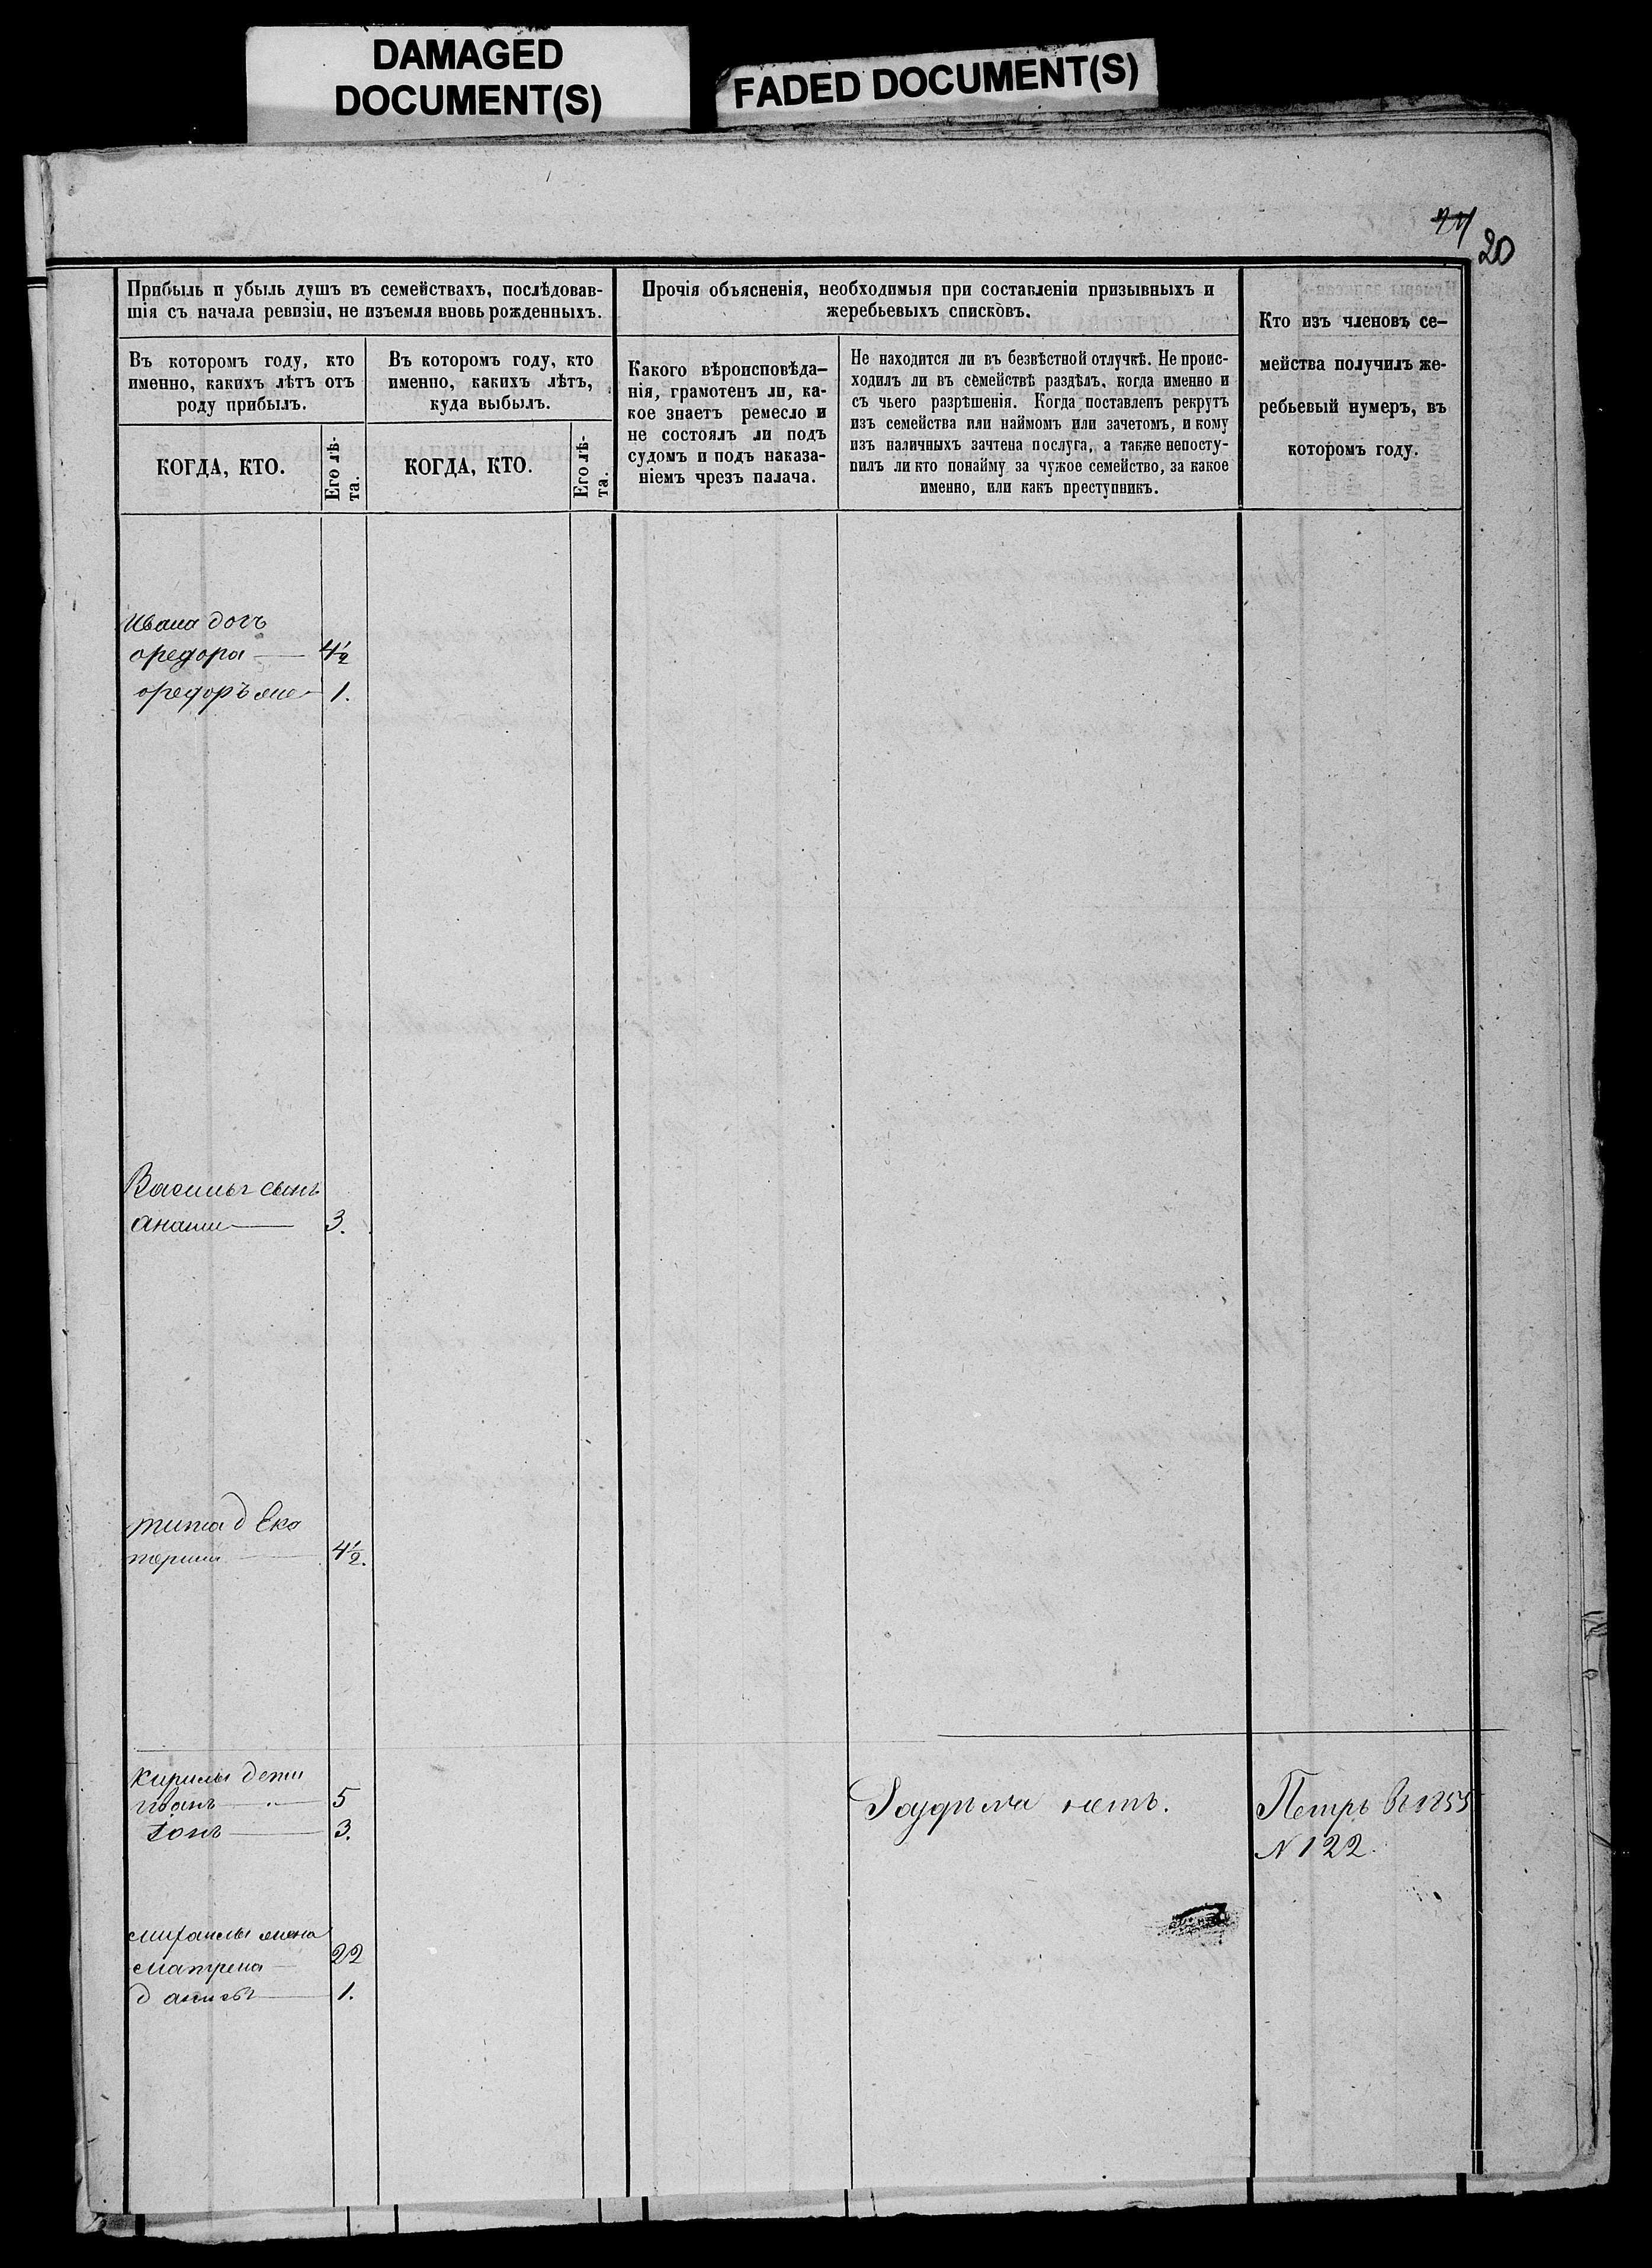 DAMAGED
DOCUMENT(S)
FADED DOCUMENT(S)
20
Прибыль и убыль душъ въ семействахъ, послѣдовав-
шія съ начала ревизіи, не изъемля вновь рожденныхъ.
Въ которомъ году, кто
именно, какихъ лѣтъ отъ
роду прибылъ.
КОГДА, КТО.
Его лѣ-
та.
Въ которомъ году, кто
именно, какихъ лѣтъ,
куда выбылъ.
КОГДА, КТО.
Его лѣ-
та.
Прочія объясненія, необходимыя при составленіи призывныхъ и
жеребьевыхъ списковъ.
Какого вѣроисповѣда-
нія, грамотенъ ли, ка-
кое знаетъ ремесло и
не состоялъ ли подъ
судомъ и подъ наказа-
ніемъ чрезъ палача.
Не находится ли въ безвѣстной отлучкѣ. Не проис-
ходилъ ли въ семействѣ раздѣлъ, когда именно и
съ чьего разрѣшенія. Когда поставленъ рекрутъ
изъ семейства или наймомъ или зачетомъ, и кому
изъ наличныхъ зачтена послуга, а также непосту-
пилъ ли кто понайму за чужое семейство, за какое
именно, или какъ преступникъ.
Кто изъ членовъ се-
мейства получилъ же-
ребьевый нумеръ, въ
которомъ году.
Ивана доч
Ѳедора 4½
1.
Василья сынъ
3.
тита д Ека
терина 4½.
Кирилы дети
Иванъ 5
3.
нетъ.
Петръ в 1855
N 122.
михаилы жена
матрена 22
д 1.